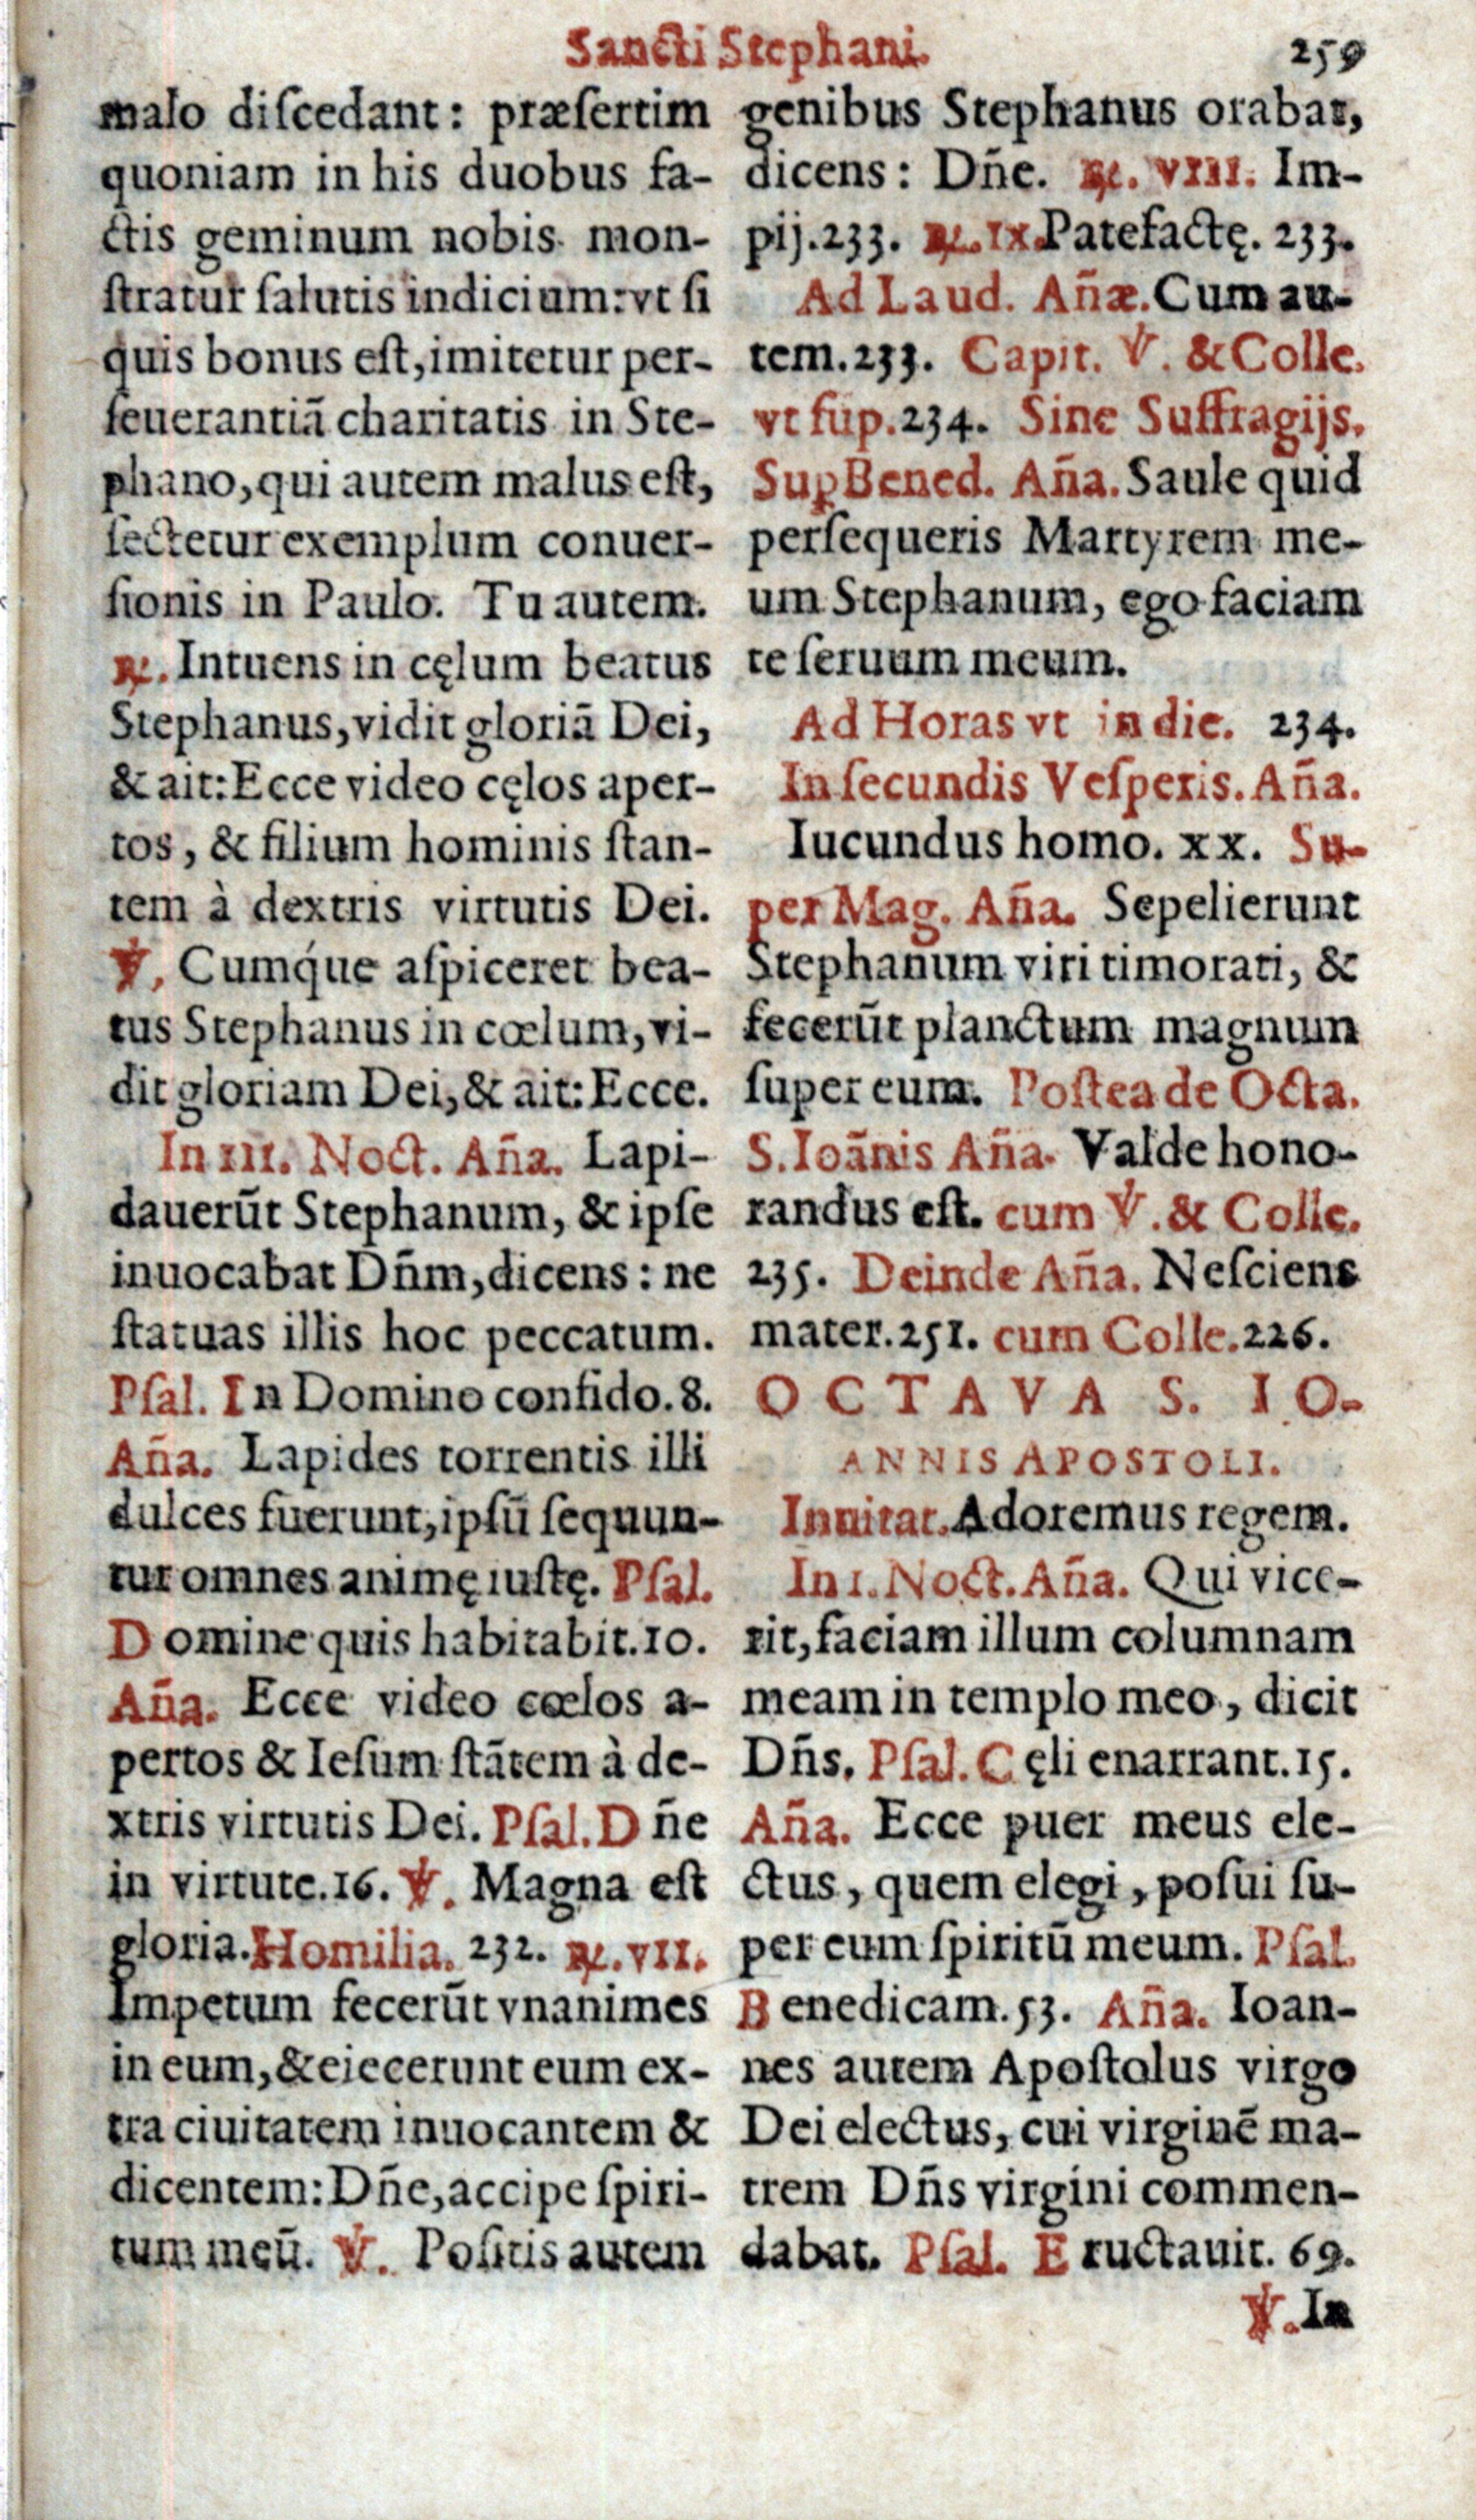 Sancti Stephani. 259
malo diſcedant: præſertim
quoniam in his duobus fa-
ctis geminum nobis mon-
ſtratur ſalutis indicium: vt ſi
quis bonus eſt, imitetur per-
ſeuerantiã charitatis in Ste-
phano, qui autem malus eſt,
ſectetur exemplum conuer-
ſionis in Paulo. Tu autem.
℟. Intuens in cęlum beatus
Stephanus, vidit gloriã Dei,
& ait: Ecce video cęlos aper-
tos, & filium hominis ſtan-
tem à dextris virtutis Dei.
℣. Cumq́ue aſpiceret bea-
tus Stephanus in cœlum, vi-
dit gloriam Dei, & ait: Ecce.
In III. Noct. Añа. Lapi-
dauerũt Stephanum, & ipſe
inuocabat Dñm, dicens: ne
ſtatuas illis hoc peccatum.
Pſal. In Domino confido. 8.
Aña. Lapides torrentis illi
dulces fuerunt, ipſũ ſequun-
tur omnes animę iuſtę. Pſal.
Domine quis habitabit. 10.
Aña. Ecce video cœlos a-
pertos & Ieſum ſtãtem à de-
xtris virtutis Dei. Pſal. Dñe
in virtute. 16. ℣. Magna eſt
gloria. Homilia. 232. ℟. VII.
Impetum fecerũt vnanimes
in eum, & eiecerunt eum ex-
tra ciuitatem inuocantem &
dicentem: Dñe, accipe ſpiri-
tum meũ. ℣. Poſitis autem
genibus Stephanus orabat,
dicens: Dñe. ℟. VIII. Im-
pij. 233. ℟. IX. Patefactę. 233.
Ad Laud. Añæ. Cum au-
tem. 233. Capit. ℣. & Colle.
vt ſup. 234. Sine Suffragijs.
Suꝑ Bened. Aña. Saule quid
perſequeris Martyrem me-
um Stephanum, ego faciam
te ſeruum meum.
Ad Horas vt in die. 234.
In ſecundis Veſperis. Aña.
Iucundus homo. xx. Su-
per Mag. Aña. Sepelierunt
Stephanum viri timorati, &
fecerũt planctum magnum
ſuper eum. Poſtea de Octa.
S. Ioãnis Aña. Valde hono-
randus eſt. cum ℣. & Colle.
235. Deinde Aña. Neſciens
mater. 251. cum Colle. 226.
OCTAVA S. IO-
ANNIS APOSTOLI.
Inuitat. Adoremus regem.
In I. Noct. Aña. Qui vice-
rit, faciam illum columnam
meam in templo meo, dicit
Dñs. Pſal. Cęli enarrant. 15.
Aña. Ecce puer meus ele-
ctus, quem elegi, poſui ſu-
per eum ſpiritũ meum. Pſal.
Benedicam. 53. Aña. Ioan-
nes autem Apoſtolus virgo
Dei electus, cui virginẽ ma-
trem Dñs virgini commen-
dabat. Pſal. Eructauit. 69.
℣. In